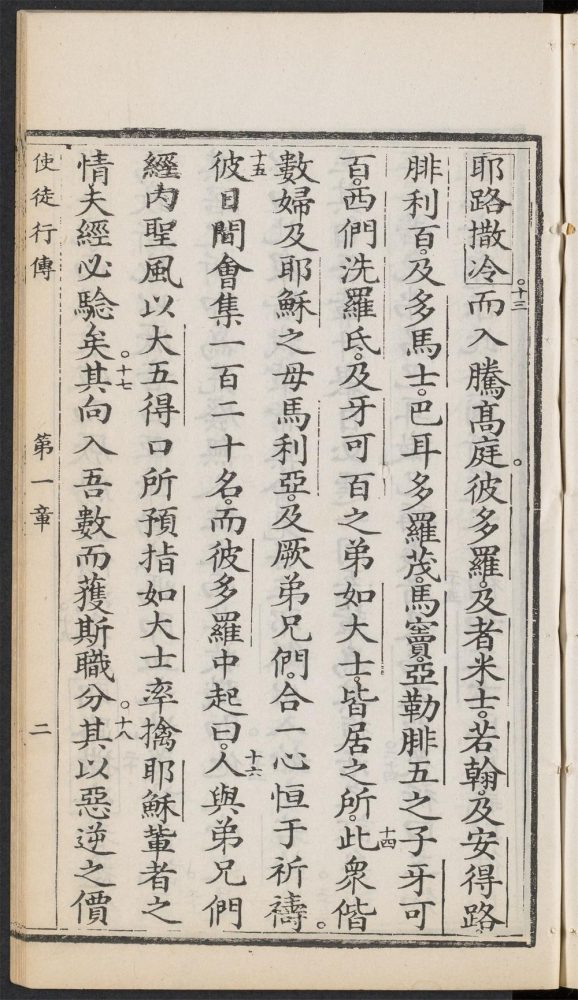 耶路撒冷。十三而入騰高庭。彼多羅。及者米士。若翰。及安得路
腓利百。及多馬士。巴耳多羅茂。馬竇。亞勒腓五之子牙可
百。西們洗羅氐。及牙可百之弟如大士。皆居之所。十四此衆偕
數婦及耶穌之母馬利亞。及厥弟兄們。合一心恒于祈禱。
十五彼日間會集一百二十名。而彼多羅中起曰。十六人與弟兄們
經內聖風以大五得口所預指如大士率擒耶穌軰者之
情夫經必驗矣。十七其向入吾數而獲斯職分。十八其以惡逆之價
使徒行傳 第一章 二